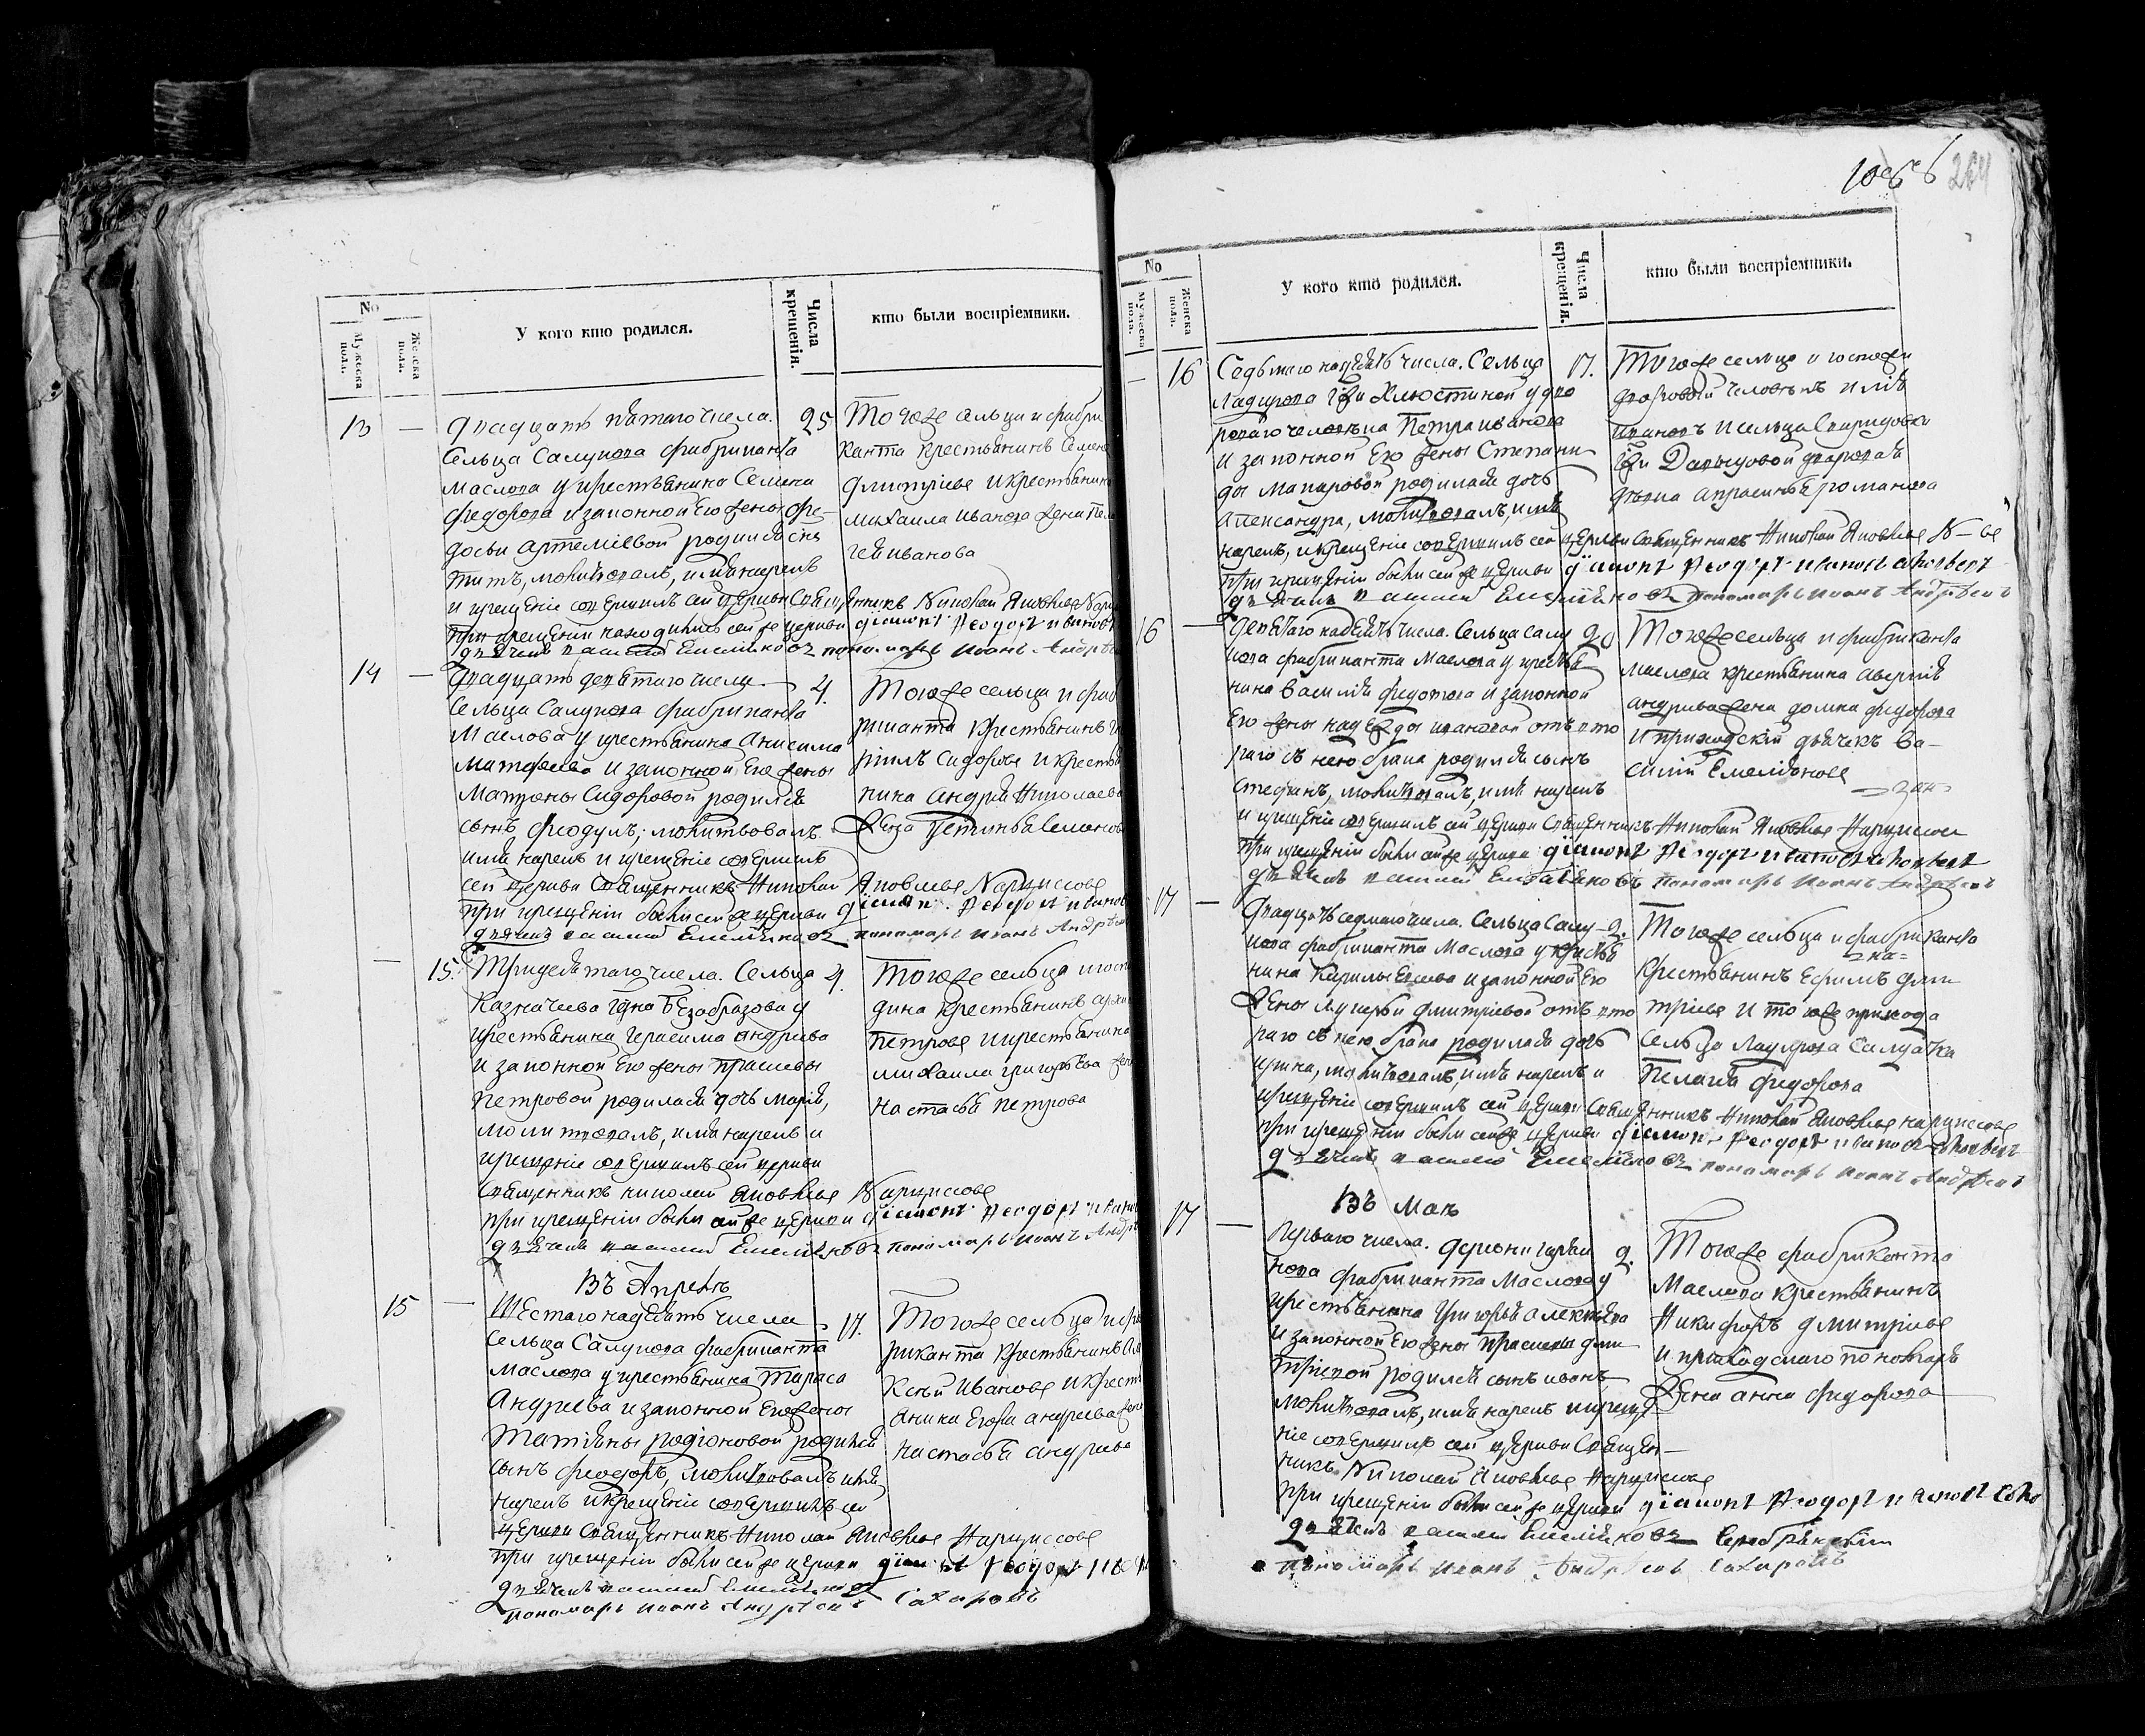 No
Мужеска пола.
Женска пола.
У кого кто родился.
Числа крещенія.
кто были воспріемники.
13 — Двадцать пятаго числа. 25
Сельца Салукова фабриканта
Маслова у крестьянина Семена
Федорова и законной его жены Фе-
досьи Артеміевой родился сынъ
Титъ, молитвовалъ, имя нарекъ
и крещеніе совершилъ сей церкви Священникъ Николай Яковлевъ
при крещеніи находились сей же церкви діаконъ Ѳеодоръ Ивановъ
дьячекъ Василій Емеліяновъ пономарь Иоаннъ Андр
Тогоже сельца и фабри
канта крестьянинъ Семенъ
Дмитріевъ и крестьянина
Михаила Иванова жена Пела
гея Иванова
14 — Двадцать девятаго числа 4.
Сельца Салукова фабриканта
Маслова у крестьянина Анисима
Матвеева и законной его жены
Матроны Сидоровой родился
сынъ Феодулъ, молитвовалъ
имя нарекъ и крещеніе совершилъ
сей церкви Священникъ Николай Яковлевъ Нарциссовъ
при крещеніи были сей же церкви діаконъ Ѳеодоръ Иванов
дьячекъ Василій Емеліяновъ пономарь Иоаннъ Андрѣев
Тогоже сельца и фаб
риканта крестьянинъ
Сидоровъ и крестья
нина Андрея Николаева
жена Устинья Семенов
— 15. Тридесятаго числа. Сельца 4.
Казначеева Гдна Безобразова у
крестьянина Герасима Андреева
и законной его жены Прасковьи
Петровой родилася дочь Марія,
молитвовалъ, имя нарекъ и
крещеніе совершилъ сей церкви
Священникъ Николай Яковлевъ Нарциссовъ
при крещеніи были сей же церкви діаконъ Ѳеодоръ Иванов
дьячекъ Василій Емеліяновъ пономарь Иоаннъ Андр
Тогоже сельца и госпо
дина крестьянинъ
Петровъ и крестьянина
Михаила Григорьева жен
Настасья Петрова
Въ Апрелѣ
15 — Шестагонадесять числа 17.
Сельца Салукова фабриканта
Маслова у крестьянина Тараса
Андреева и законной его жены
Татіяны Родіоновой родился
сынъ Феодоръ, молитвовалъ имя
нарекъ и крещеніе совершилъ сей
церкви Священникъ Николай Яковлевъ Нарциссовъ
при крещеніи были сей же церкви діаконъ Ѳеодоръ
дьячекъ Василій Емеліяновъ
пономарь Иоаннъ Андрѣевъ Сахаровъ
Тогоже сельца и фаб
риканта крестьянинъ Але
ксѣй Ивановъ и крест
янина Егора Андреева жен
Настасья Андреева
264
No
Мужеска пола.
Женска пола.
У кого кто родился.
Числа крещенія.
кто были воспріемники.
— 16 Седьмагонадесять числа. Сельца 17.
Гжи Хлюстиной у дво
роваго человека Петра Иванова
и законной его жены Степани
ды Макаровой родилася дочь
Александра, молитвовалъ, имя
нарекъ, и крещеніе совершилъ сей церкви Священникъ Николай Яковлевъ
при крещеніи были сей же церкви діаконъ Ѳеодоръ Ивановъ
дьячекъ Василій Емеліяновъ пономарь Иоаннъ Андрѣевъ
Тогоже сельца и госпожи
дворовый человѣкъ
Ивановъ и сельца Спиридовки
Гжи Давыдовой дворовая
девка Апраксинья Романова
16 — Девятагонадесять числа. Сельца Салу 20
кова фабриканта Маслова у крестья
нина Василія Федотова и законной
его жены Надежды Ивановой отъ вто
раго съ нею брака родился сынъ
Стефанъ, молитвовалъ, имя нарекъ
и крещеніе совершилъ сей церкви Священникъ Николай Яковлевъ Нарциссовъ
при крещеніи были сей же церкви діаконъ Ѳеодоръ Ивановъ
дьячекъ Василій Емеліяновъ пономарь Иоаннъ Андрѣевъ
Тогоже сельца и фабриканта
Маслова крестьянина Аверкія
Андреева жена Домна Федорова
и приходскій дьячекъ Ва-
силій Емеліяновъ
17 — Двадцать седмаго числа. Сельца Салу 2.
кова фабриканта Маслова у крестья
нина Кирилы и законной его
жены Лукерьи Дмитріевой отъ вто
раго съ нею брака родилася дочь
Ирина, молитвовалъ, имя нарекъ и
крещеніе совершилъ сей церкви Священникъ Николай Яковлевъ Нарциссовъ
при крещеніи были сей же церкви діаконъ Ѳеодоръ Ивановъ
дьячекъ Василій Емеліяновъ пономарь Иоаннъ Андрѣевъ
Тогоже сельца и фабриканта
крестьянинъ Ефимъ Дми
тріевъ и тогоже прихода
сельца Салдатка
Пелагія Федорова
Въ Маѣ
17 — Перваго числа. Деревни 2.
фабриканта Маслова у
крестьянина Григорья Алексѣева
и законной его жены Прасковьи Дми
тріевой родился сынъ Иванъ
молитвовалъ, имя нарекъ и креще
ніе совершилъ сей церкви Священ-
никъ Николай Яковлевъ Нарциссовъ
при крещеніи были сей же церкви діаконъ Ѳеодоръ Ивановъ
дьячекъ Василій Емеліяновъ
пономарь Иоаннъ Андрѣевъ Сахаровъ
Тогоже фабриканта
Маслова крестьянинъ
Никифоръ Дмитріевъ
и приходскаго пономаря
жена Анна Федорова